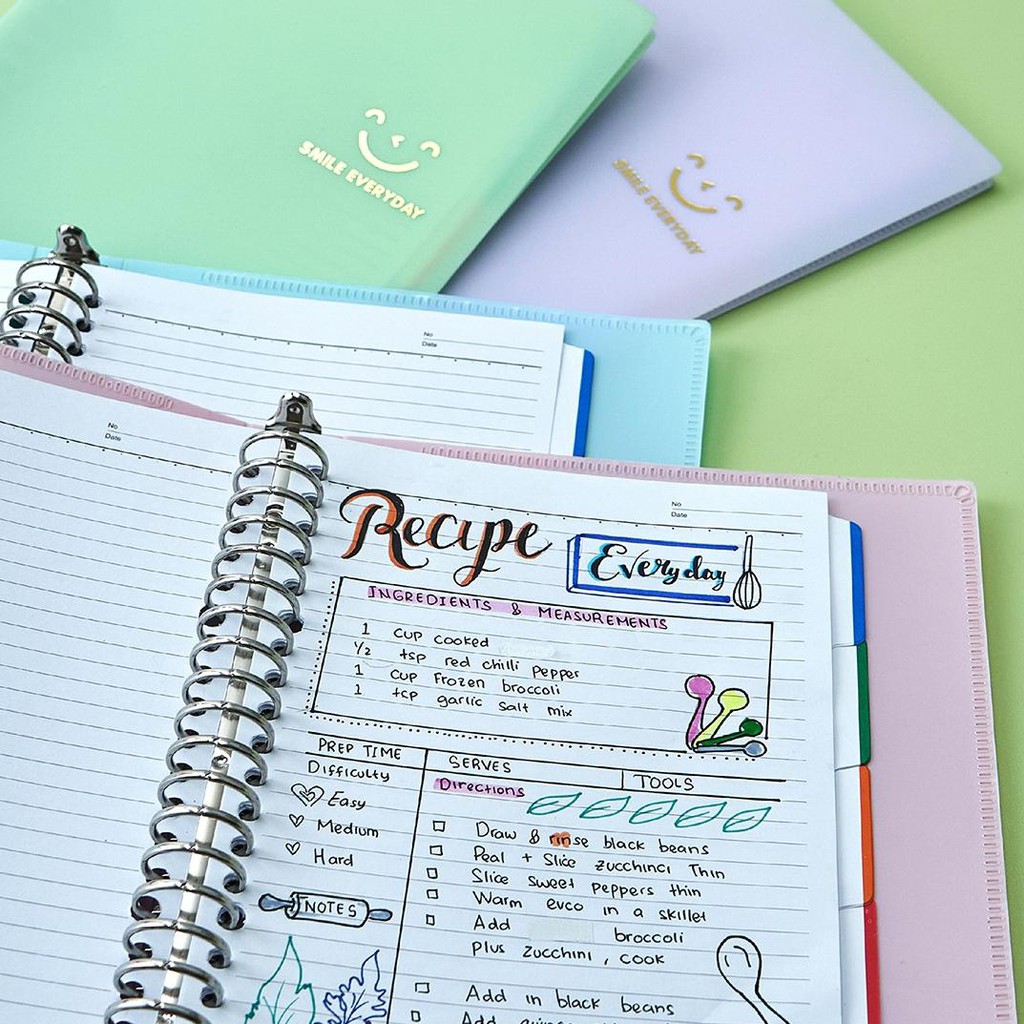 SMILE EVERYDAY
SMILE EVERYDAY
No
Date
No
Date
No
Date
Recipe
Everyday
INGREDIENTS & MEASUREMENTS
1 cup cooked
1/2 tsp red chilli pepper
1 cup frozen broccoli
1 tcp garlic salt mix
PREP TIME
SERVES
TOOLS
Difficulty
Easy
Medium
Hard
NOTES
Directions
Draw & rinse black beans
Peal + Slice zucchinci Thin
Slice sweet peppers thin
Warm evco in a skillet
Add broccoli
plus zucchini, cook
Add in black beans
Add